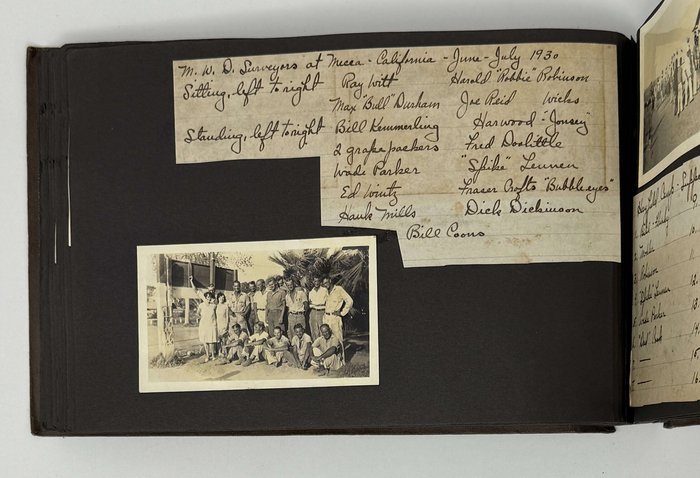 M. W. D. Surveyors at Mecca - California - June - July 1930
Sitting, left to right Ray Witt Harold "Robbie" Robinson
Max "Bull" Durham Joe Reid Wicks
Standing, left to right Bill Kemmerling Harwood - "Jonsey"
2 grape packers Fred Doolittle
Wade Parker "Spike" Lennen
Ed Wintz Fraser Crofts "Bubble eyes"
Hank Mills Dick Dickinson
Bill Coons
Robinson
"Spike" Lennen
Wade Parker